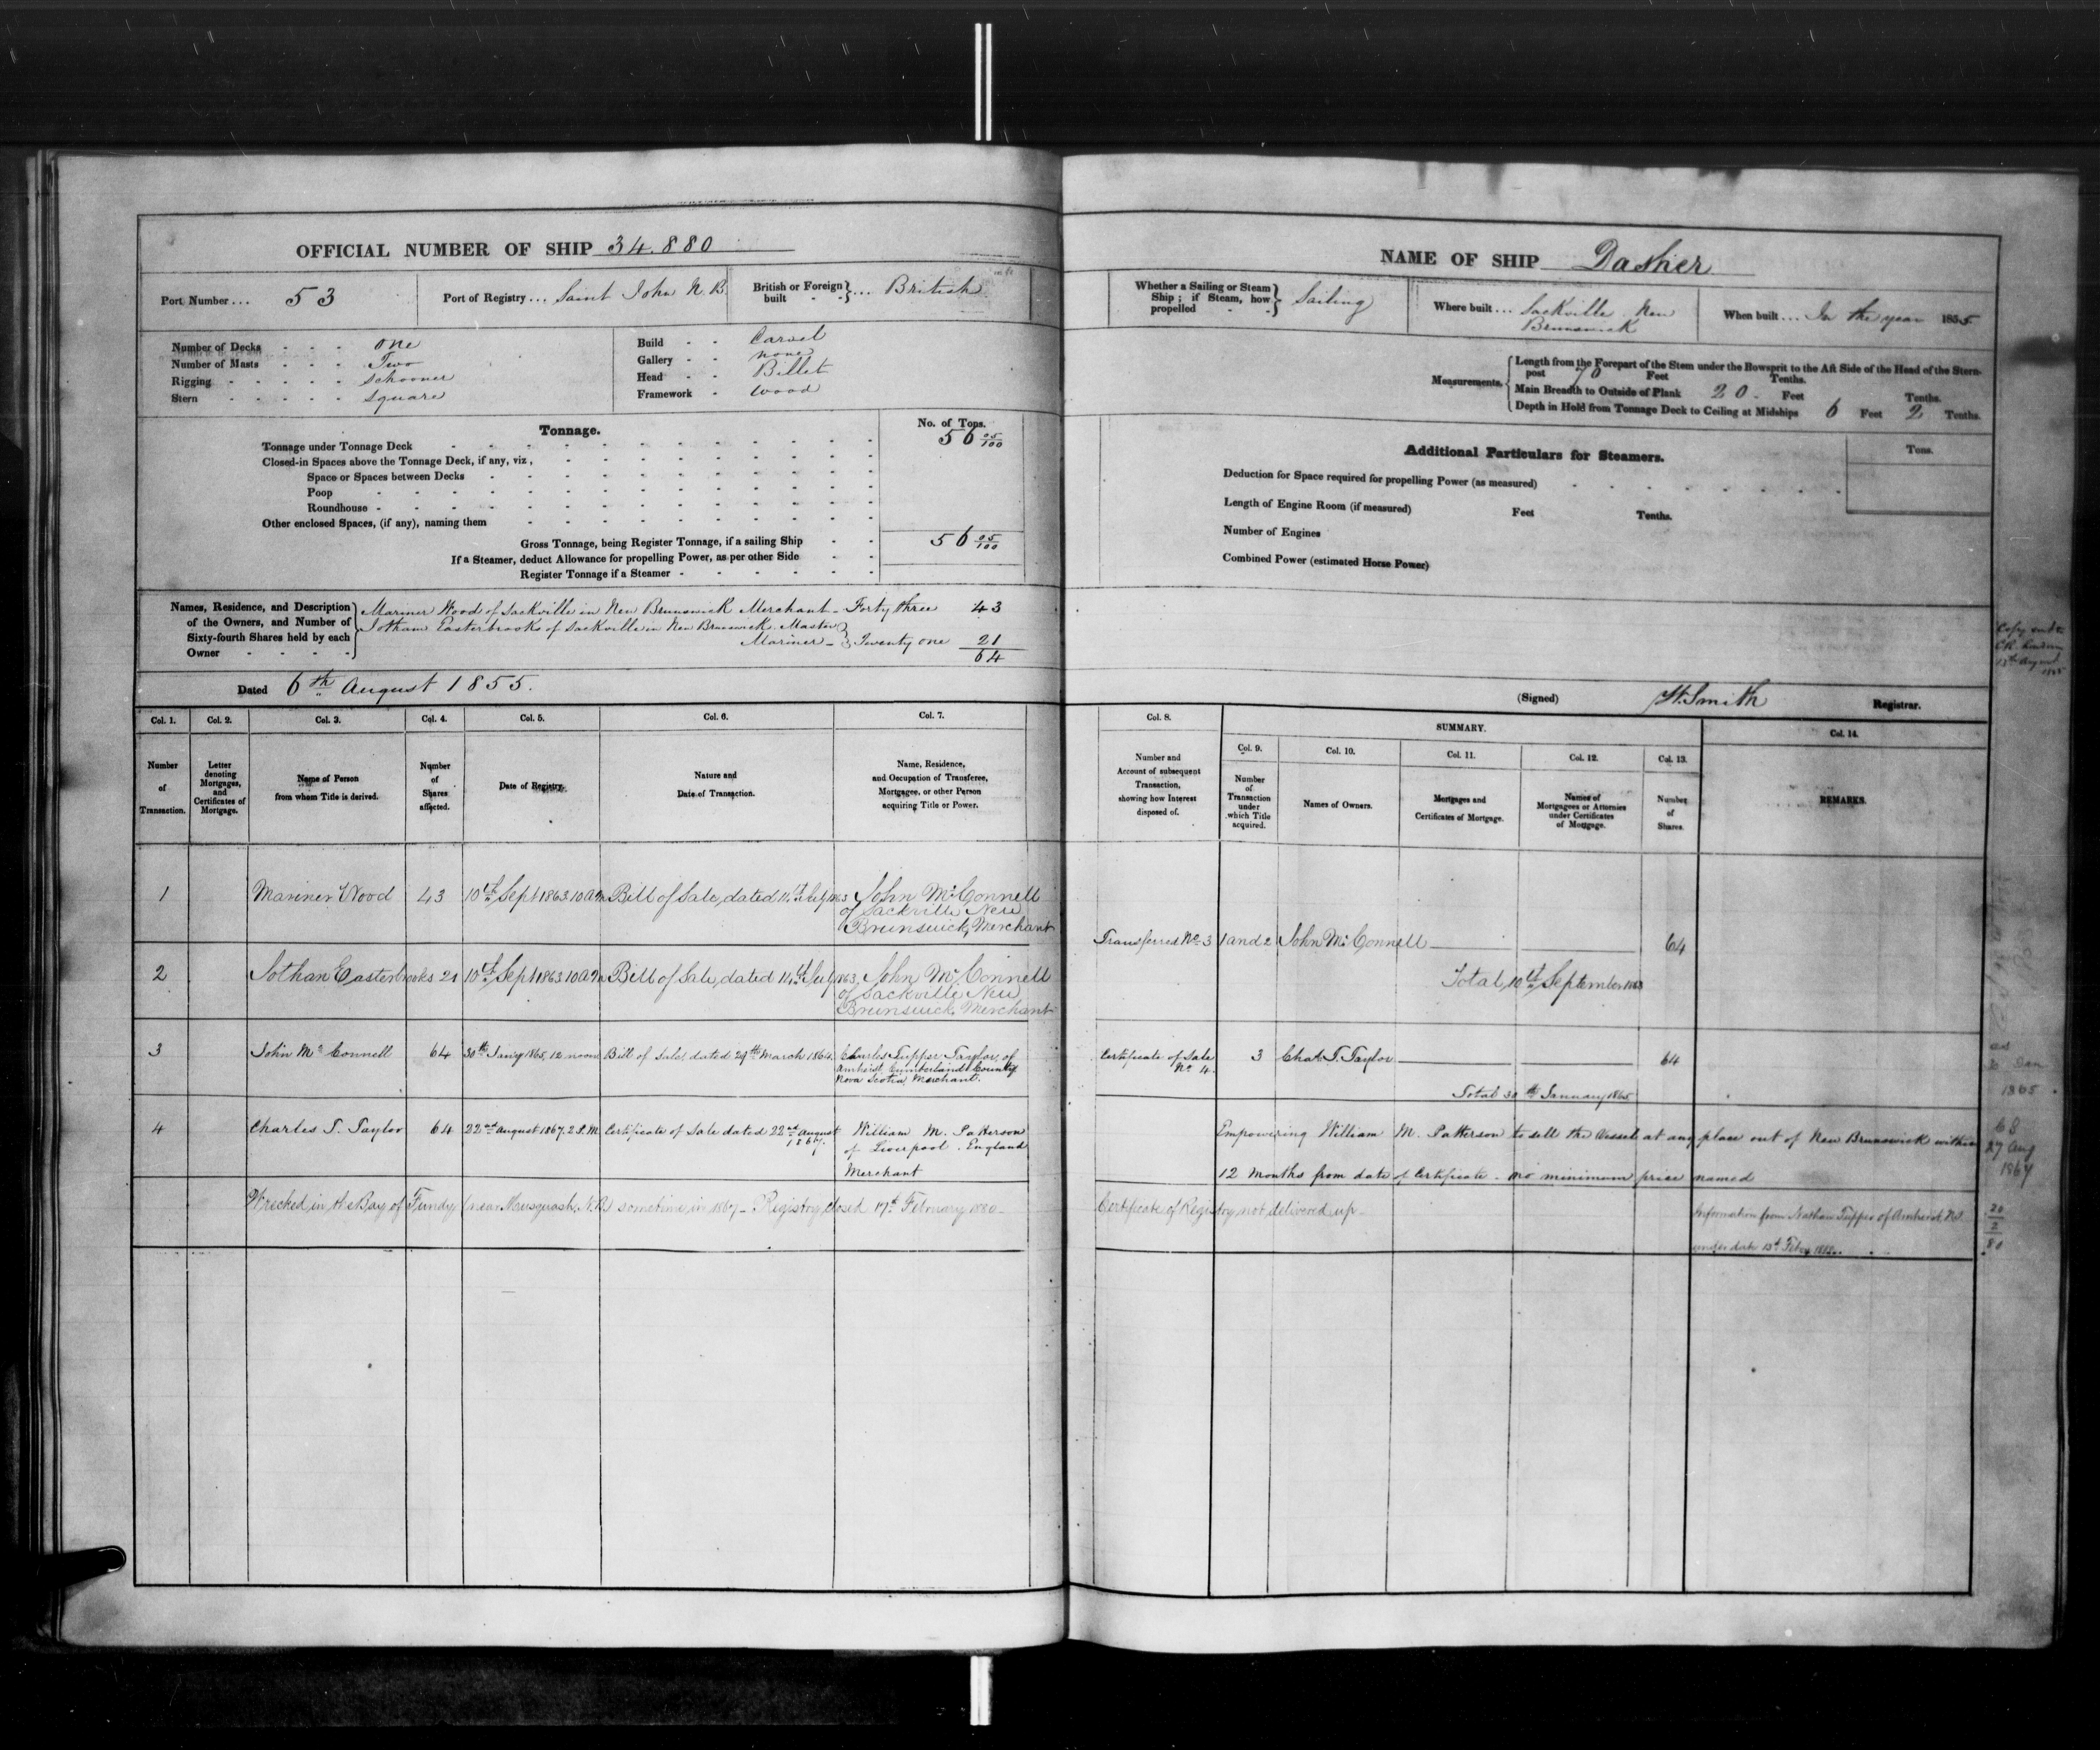 OFFICIAL NUMBER OF SHIP 34.880
Port Number ... 53
Port of Registry ... Saint John N.B.
British or Foreign built - - } ... British
Number of Decks - - - one
Number of Masts - - - Two
Rigging - - - - - Schooner
Stern - - - - - square
Build - - Carvel
Gallery - - none
Head - - Billet
Framework - wood
Tonnage.
No. of Tons.
Tonnage under Tonnage Deck 56 05/100
Closed-in Spaces above the Tonnage Deck, if any, viz,
Space or Spaces between Decks
Poop
Roundhouse
Other enclosed Spaces, (if any), naming them
Gross Tonnage, being Register Tonnage, if a sailing Ship 56 05/100
If a Steamer, deduct Allowance for propelling Power, as per other Side
Register Tonnage if a Steamer
Names, Residence, and Description of the Owners, and Number of Sixty-fourth Shares held by each Owner
Mariner Wood of Sackville in New Brunswick Merchant - Forty three 43
Jotham Easterbrooks of Sackville in New Brunswick Master
Mariner - } Twenty one 21
64
Dated 6th August 1855.
Col. 1. Col. 2. Col. 3. Col. 4. Col. 5. Col. 6. Col. 7.
Number of Transaction.
Letter denoting Mortgages, and Certificates of Mortgage.
Name of Person from whom Title is derived.
Number of Shares affected.
Date of Registry.
Nature and Date of Transaction.
Name, Residence, and Occupation of Transferee, Mortgagee, or other Person acquiring Title or Power.
1 Mariner Wood 43 10th Sept 1863 10 am Bill of Sale, dated 14th July 1863 John McConnell
of Sackville New
Brunswick, Merchant
2 Jothan Easterbrooks 21 10th Sept 1863 10 am Bill of Sale, dated 14th July 1863, John McConnell
of Sackville New
Brunswick, Merchant
3 John McConnell 64 30th Jany 1865, 12 noon Bill of Sale, dated 29th March 1864. Charles Tupper Taylor, of
Amherst, Cumberland County
Nova Scotia, Merchant.
4 Charles T. Taylor 64 22nd August 1867. 2 P.M. Certificate of Sale dated 22nd August 1867. William M. Patterson
of Liverpool. England
Merchant
Wrecked in the Bay of Fundy (near Musquash, N.B) sometime in 1867 - Registry closed 17th February 1880 -
NAME OF SHIP Dasher
Whether a Sailing or Steam Ship; if Steam, how propelled - - } Sailing
Where built ... Sackville New
Brunswick
When built ... In the year 1855
Measurements.
Length from the Forepart of the Stem under the Bowsprit to the Aft Side of the Head of the Stern-
post 70 Feet Tenths.
Main Breadth to Outside of Plank 20 - Feet Tenths.
Depth in Hold from Tonnage Deck to Ceiling at Midships 6 Feet 2 Tenths.
Additional Particulars for Steamers.
Tons.
Deduction for Space required for propelling Power (as measured)
Length of Engine Room (if measured) Feet Tenths.
Number of Engines
Combined Power (estimated Horse Power)
Copy sent to
August
(Signed) Smith Registrar.
Col. 8. SUMMARY. Col. 14.
Col. 9. Col. 10. Col. 11. Col. 12. Col. 13.
Number and Account of subsequent Transaction, showing how Interest disposed of.
Number of Transaction under which Title acquired.
Names of Owners.
Mortgages and Certificates of Mortgage.
Names of Mortgagees or Attornies under Certificates of Mortgage.
Number of Shares.
REMARKS.
Transferred No 3 1 and 2 John McConnell 64
Total, 10th September 1863
Certificate of Sale No 4. 3 Chas. T. Taylor 64
Total 30th January 1865
1865
Empowering William M. Patterson to sell the Vessel at any place out of New Brunswick within
12 Months from date of Certificate - no minimum price named
27 Aug
1867
Certificate of Registry not delivered up -
Information from Nathan Tupper of Amherst NS
under date 13th Feby
20
2
80